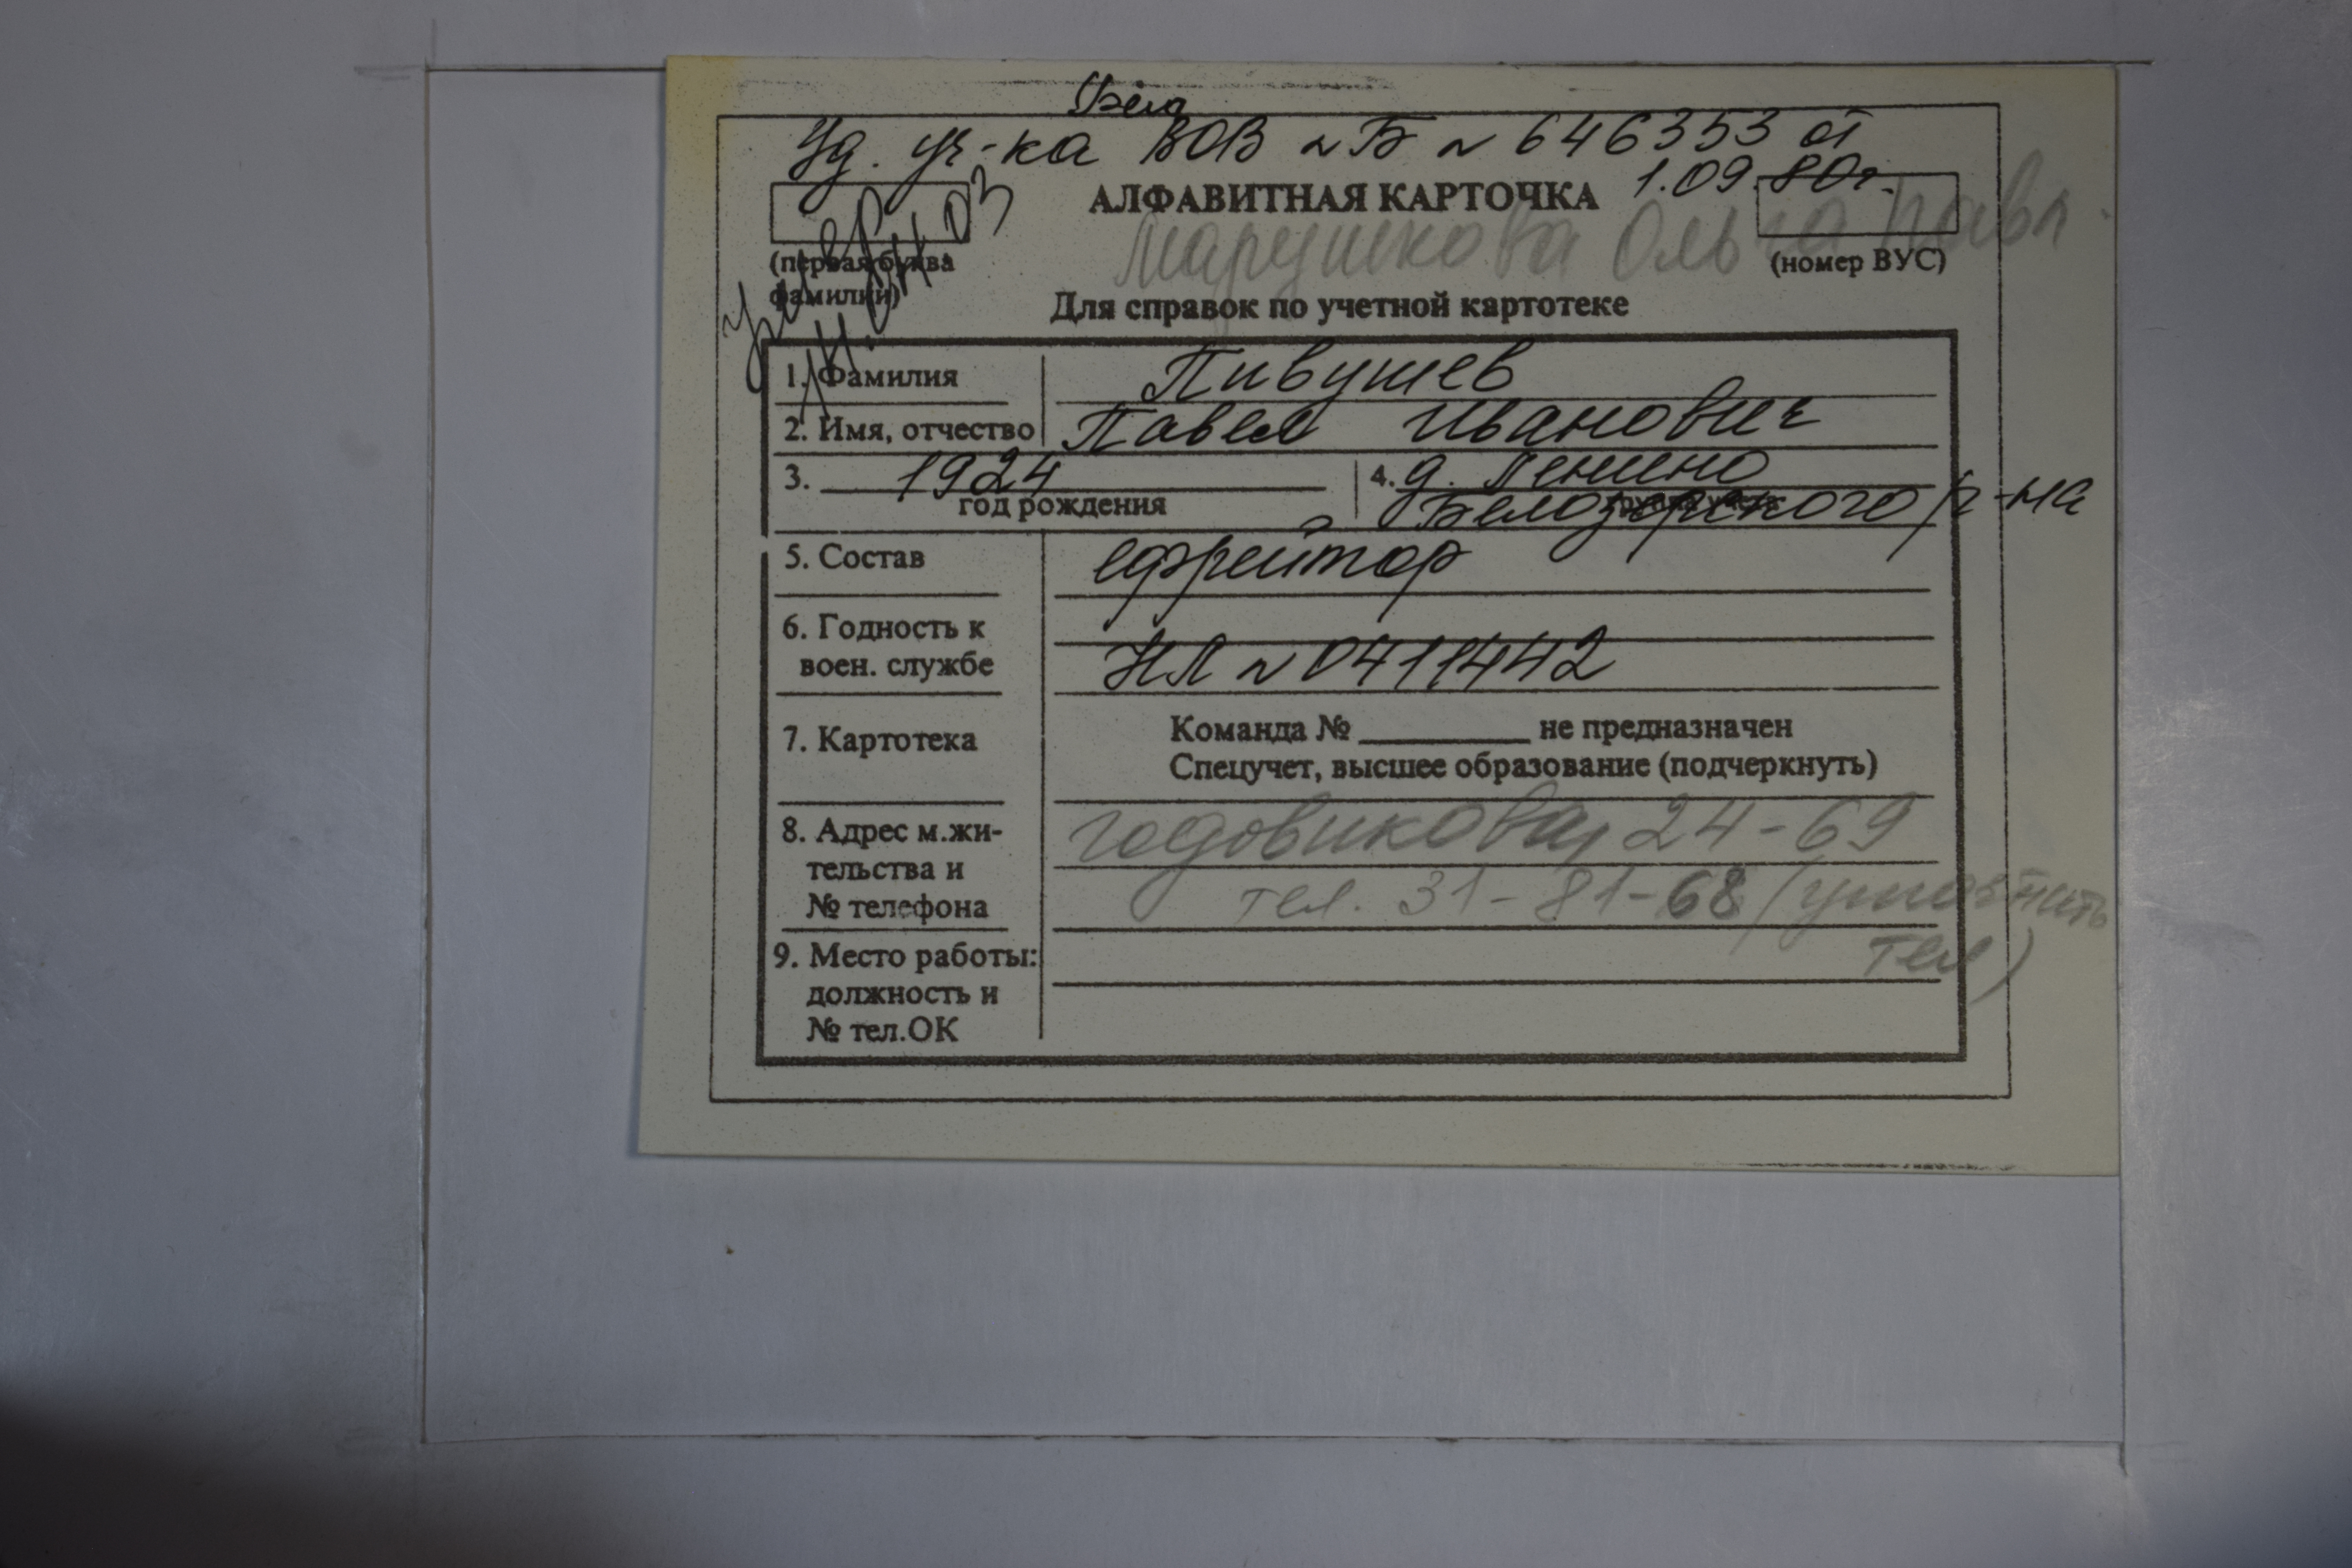 Уд. уч-ка ВОВ ~ Б ~ 646353 от
1.09.80г.
АЛФАВИТНАЯ КАРТОЧКА
Марушкова Ольга Павл.
(первая буква
фамилии)
(номер ВУС)
умер
Для справок по учетной картотеке
1. Фамилия Пивушев
2. Имя, отчество Павел Иванович
3. 1924
год рождения
4. д. Ленино
Белозерского р-на
5. Состав ефрейтор
6. Годность к
воен. службе НЛ ~ 0411442
7. Картотека
Команда № ________ не предназначен
Спецучет, высшее образование (подчеркнуть)
8. Адрес м.жи-
тельства и
№ телефона
Годовикова, 24-69
тел. 31-81-68 (уточнить
тел)
9. Место работы:
должность и
№ тел.ОК